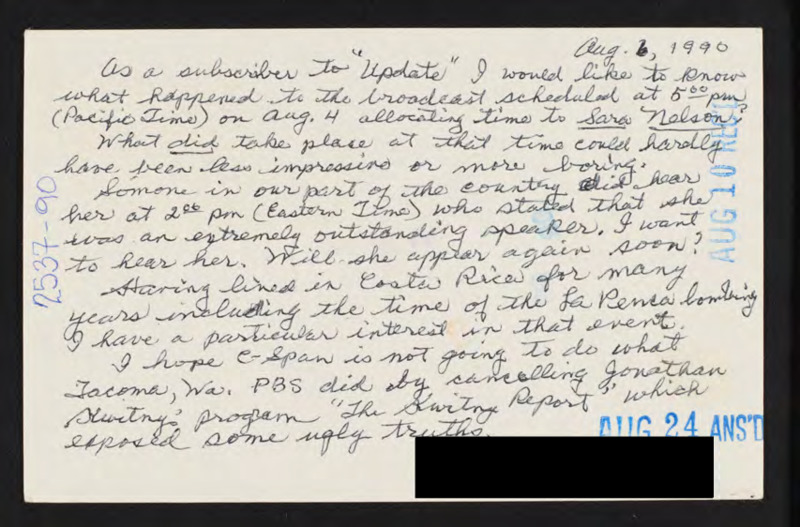 Aug. 6, 1990
As a subscriber to "Update" I would like to know
what happened to the broadcast scheduled at 5⁰⁰ pm
(Pacific Time) on Aug. 4 allocating time to Sara Nelson?
What did take place at that time could hardly
have been less impressive or more boring.
Somone in our part of the country did hear
her at 2⁰⁰ pm (Eastern Time) who stated that she
was an extremely outstanding speaker. I want
to hear her. Will she appear again soon?
Having lived in Costa Rica for many
years including the time of the La Penca bombing
I have a particular interest in that event.
I hope C-Span is not going to do what
Tacoma, Wa. PBS did by cancelling Jonathan
Kwitny's program "The Kwitny Report" which
exposed some ugly truths.
2537-90
AUG 10 REC'D
AUG 24 ANS'D